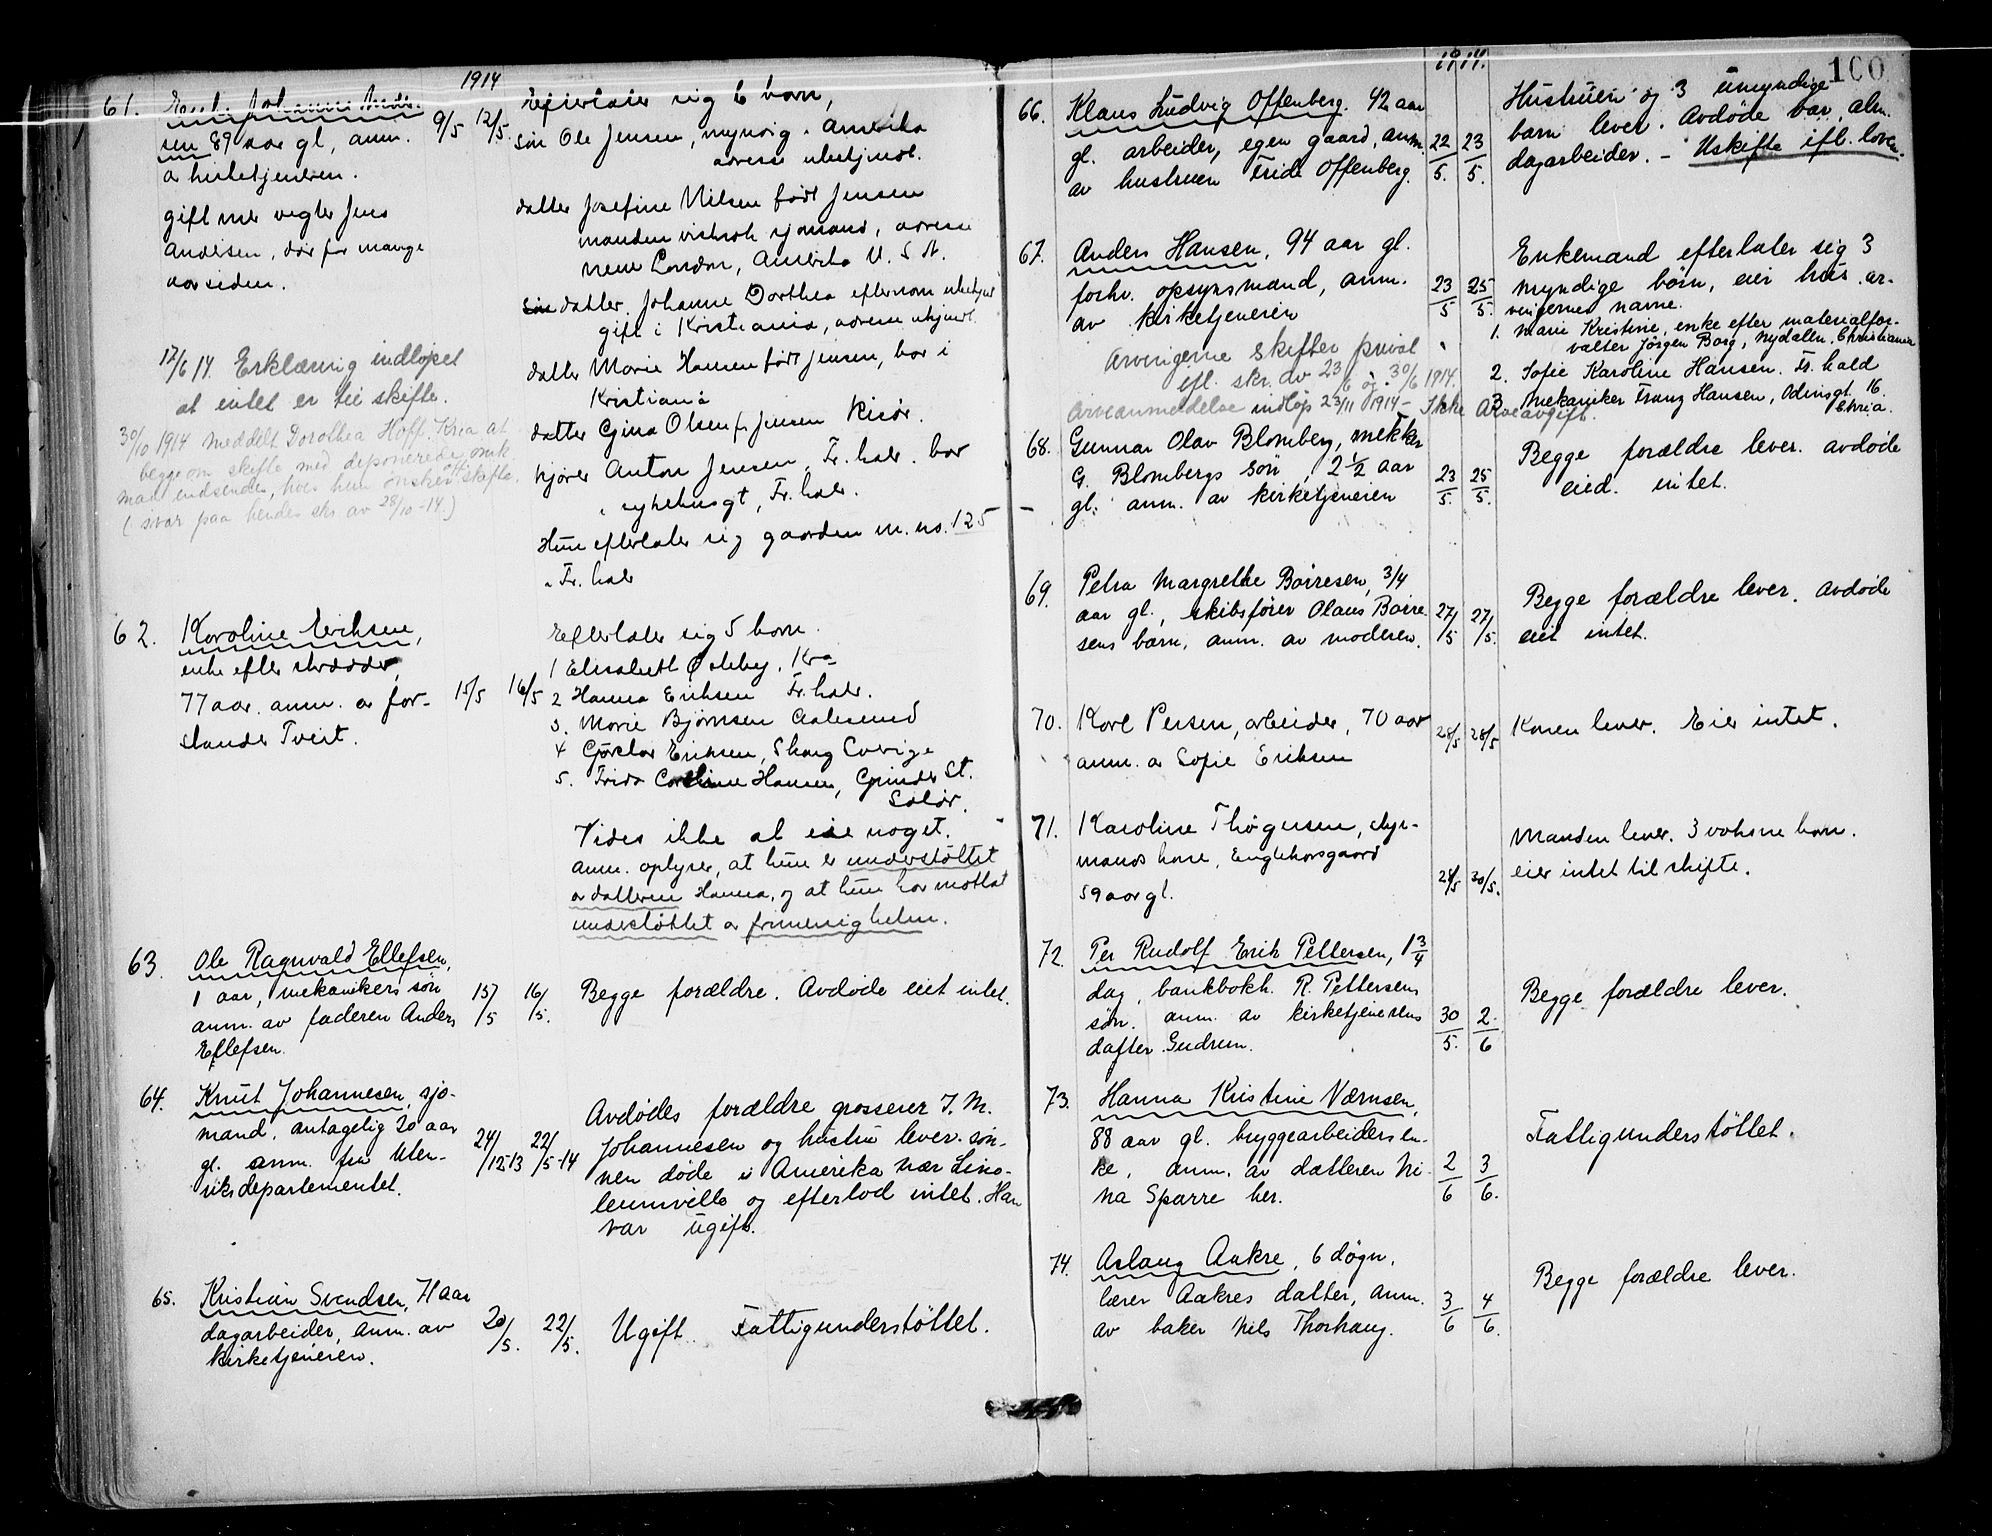 1914
61. Enke Johanne Ander-
sen 89 aar gl, anm.
a kirketjeneren.
gift med vegter Jens
Andersen, død for mange
aar siden.
9/5 12/5.
Efterlater sig 6 barn,
søn Ole Jensen, myndig. Amerika
adresse ubekjendt.
datter Josefine Nilsen født Jensen
manden sjømand, adresse
New London, Amerika U. S. A.
datter Johanne Dorthea efternavn ubekjendt
gift i Kristiania, adresse ukjendt.
datter Marie Hansen født Jensen, bor i
Kristiania
datter Gina Olsen f. Jensen Risør.
Anton Jensen, Fr.hald. bor
i sykehusgt, Fr.hald.
Hun efterlater sig gaarden m. no. 125
i Fr. hald
12/6 14. Erklæring indløpet
at intet er til skifte.
30/10 1914 meddelt Dorothea Hoff. Kr.a at
begge om skifte med deponerede omk.
maa indsendes, hvis hun ønsker skifte.
(svar paa hendes skr. av 28/10 -14.)
62. Karoline Eriksen,
enke efter skrædder,
77 aar. anm. a for-
stander Tveit.
15/5 16/5
Efterlater sig 5 barn.
1 Elisabeth Ødeby, Kra
2 Hanna Eriksen Fr.hald.
3. Marie Bjørnsen Aalesund
4 Eriksen, Skarg Sverige
5. Frida Hansen, Grinder St.
Solør.
Vides ikke at eie noget.
anm. oplyser, at hun er understøttet
av datteren Hanna, og at hun har mottat
understøttet a frimenigheten.
63. Ole Ragnvald Ellefsen,
1 aar, mekanikers søn
anm. av faderen Anders
Ellefsen.
15/5 16/5.
Begge forældre. Avdøde eiet intet.
64. Knut Johannesen, sjø-
mand, antagelig 20 aar
gl. anm. fra Uten-
riksdepartementet.
24/12 13 22/5-14
Avdødes forældre grosserer J. M.
Johannesen og hustru lever. søn-
nen døde i Amerika nær Lino-
leumville og efterlod intet. Han
var ugift.
65. Kristian Svendsen, 71 aar
dagarbeider, anm. av
kirketjeneren.
20/5. 22/5.
Ugift. Fattigunderstøttet.
1914. 100
66. Klaus Ludvig Offenberg. 42 aar
gl. arbeider, egen gaard, anm.
av hustruen Frida Offenberg.
22/5. 23/5.
Hustruen og 3 umyndige
barn lever. Avdøde var alm.
dagarbeider. - Uskifte ifl. loven.
67. Anders Hansen, 94 aar gl.
forhv. opsynsmand, anm.
av kirketjeneren
23/5 25/5.
Arvingerne skifter privat
efl. skr. av 23/6 og 30/6 1914.
Arveanmeldelse indløp 23/11 1914 - Ikke Arveavgift.
Enkemand efterlater sig 3
myndige børn, eier hus. ar-
vingernes navne.
1. Marie Kristine, enke efter materialfor-
valter Jørgen Borg, Nydalen, Christiania
2. Sofie Karoline Hansen. Fr. hald
3. Mekaniker Franz Hansen, Odinsgt. 16.
Chria.
68. Gunnar Olav Blomberg, mekkr
G. Blombergs søn, 2 1/2 aar
gl. anm. av kirketjeneren
23/5. 25/5.
Begge forældre lever. avdøde
eied. intet.
69. Petra Margrethe Børresen, 3/4
aar gl., skibsfører Olaus Børre
sens barn, anm. av moderen.
27/5 27/5.
Begge forældre lever. Avdøde
eiet intet.
70. Karl Persen, arbeider, 70 aar
anm. a Sofie Eriksen
28/5 28/5
Konen lever. Eier intet.
71. Karoline Thøgersen, styr-
mands kone, Englekorsgaard
59 aar gl.
28/5 30/5.
Manden lever. 3 voksne barn.
eier intet til skifte.
72. Per Rudolf Erik Pettersen, 1 3/4
dag, bankbokh. R. Pettersens
søn. anm. av kirketjenerens
datter Gudrun.
30/5. 2/6
Begge forældre lever.
73. Hanna Kristine Værnsen,
88 aar gl. bryggearbeiders en-
ke, anm. av datteren Ni-
na Sparre her.
2/6 3/6.
Fattigunderstøttet.
74. Aslaug Aakre, 6 døgn,
lærer Aakres datter, anm.
av baker Nils Thorhaug.
3/6 4/6.
Begge forældre lever.